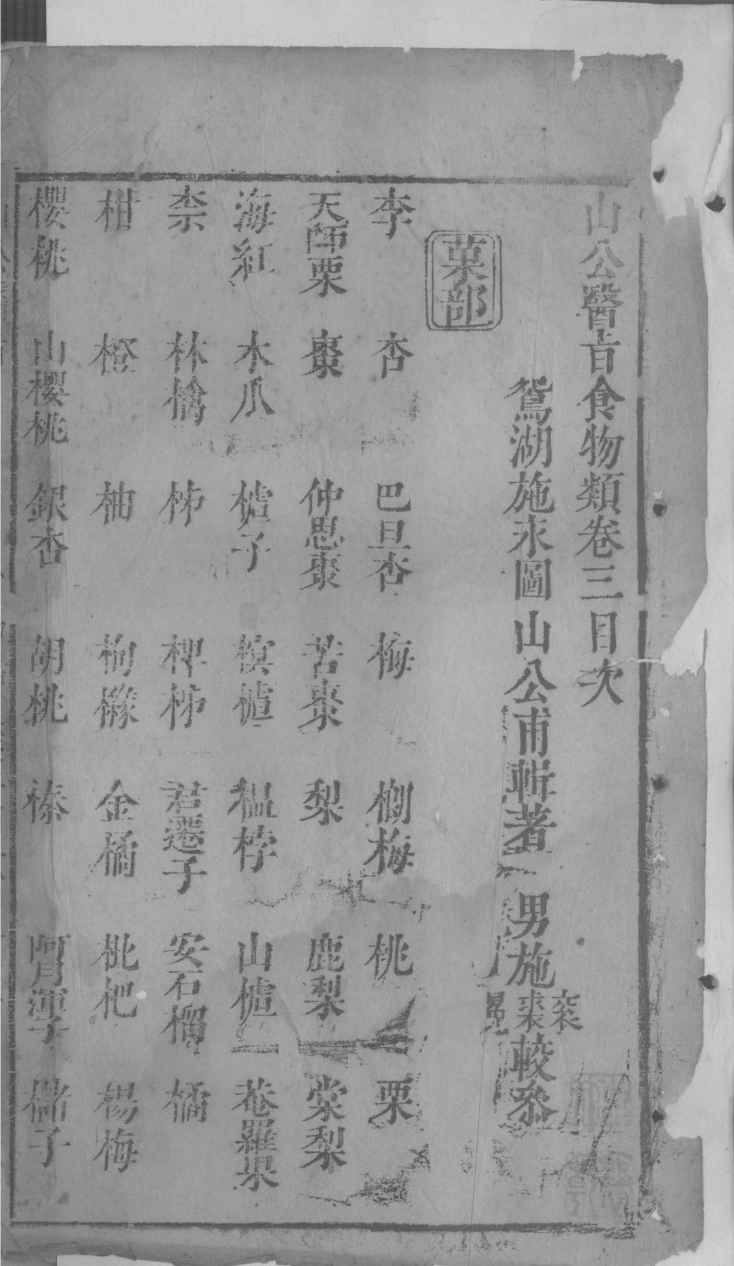 山公醫旨食物類卷三目次
鴛湖施永圖山公甫輯著 男施 較叅
菓部
李 杏 巴旦杏 梅 榔梅 桃 栗
天師栗 棗 仲思棗 苦棗 梨 鹿梨 棠梨
海紅 木瓜 樝子 榠樝 榲桲 山樝 菴羅果
柰 林檎 柿 椑柿 君遷子 安石榴 橘
柑 橙 柚 枸櫞 金橘 枇杷 楊梅
櫻桃 山櫻桃 銀杏 胡桃 榛 阿月渾子 櫧子